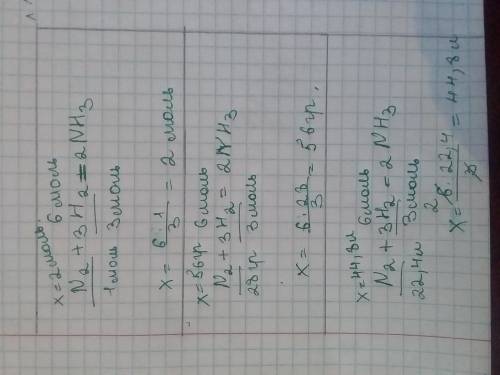 x=2моль. 6моль
N2 + 3H2 = 2NH3
1моль 3моль
x = 6·1/3 = 2 моль
x=56гр 6моль
N2 + 3H2 = 2NH3
28гр 3моль
x = 6·28/3 = 56гр.
x=44,8л 6моль
N2 + 3H2 = 2NH3
22,4л 3моль
2
x = 6·22,4/3 = 44,8л